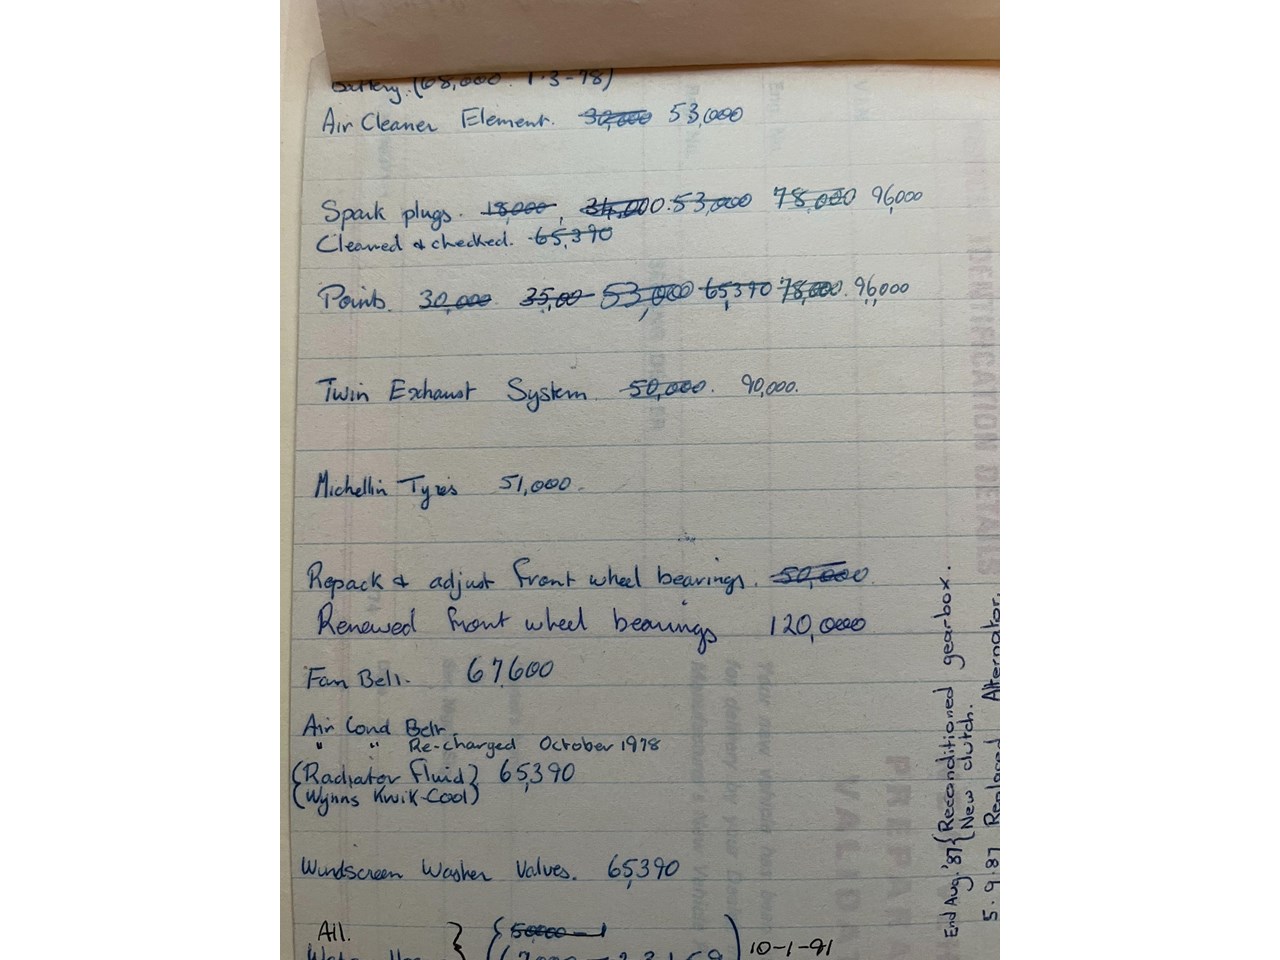 battery. (68,000 1-3-78)
Air Cleaner Element. 30,000 53,000
Spark plugs. 18,000, 34,000. 53,000 78,000 96,000
Cleaned & checked. 65,390
Points. 30,000 35,00 53,000 65,390 78,000. 96,000
Twin Exhaust System 50,000. 90,000.
Michellin Tyres 51,000.
Repack & adjust front wheel bearings. 50,000.
Renewed front wheel bearings 120,000
Fan Belt. 67,600
Air Cond Belt.
" " Re-charged October 1978
(Radiator Fluid) 65,390
(Wynns Kwik-Cool)
Windscreen Washer Valves. 65,390
All.
50000
10-1-91
End Aug. '87 { Reconditioned gearbox.
New clutch.
5.9.87 Replaced Alternator.
IDENTIFICATION DETAILS
Your new vehicle has been
for delivery by your Deal
Manufacturer's New Vehicle